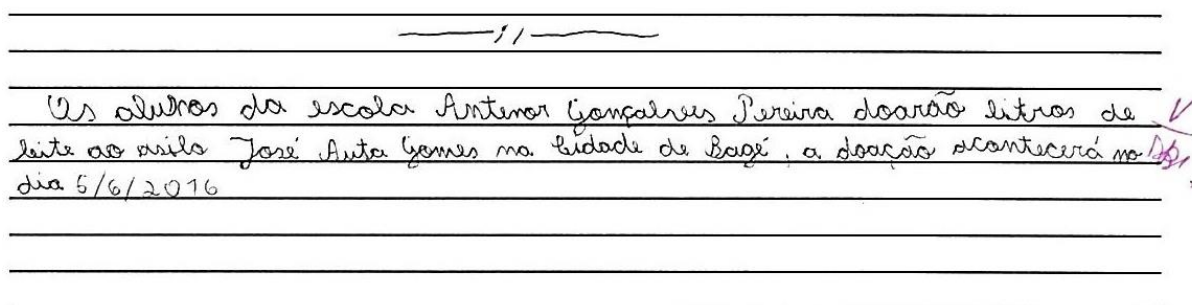 Os alunos da escola Antenor Gonçalves Pereira doarão litros de
leite ao asilo José Auta Gomes na Cidade de Bagé, a doação acontecerá no
dia 5/6/2016